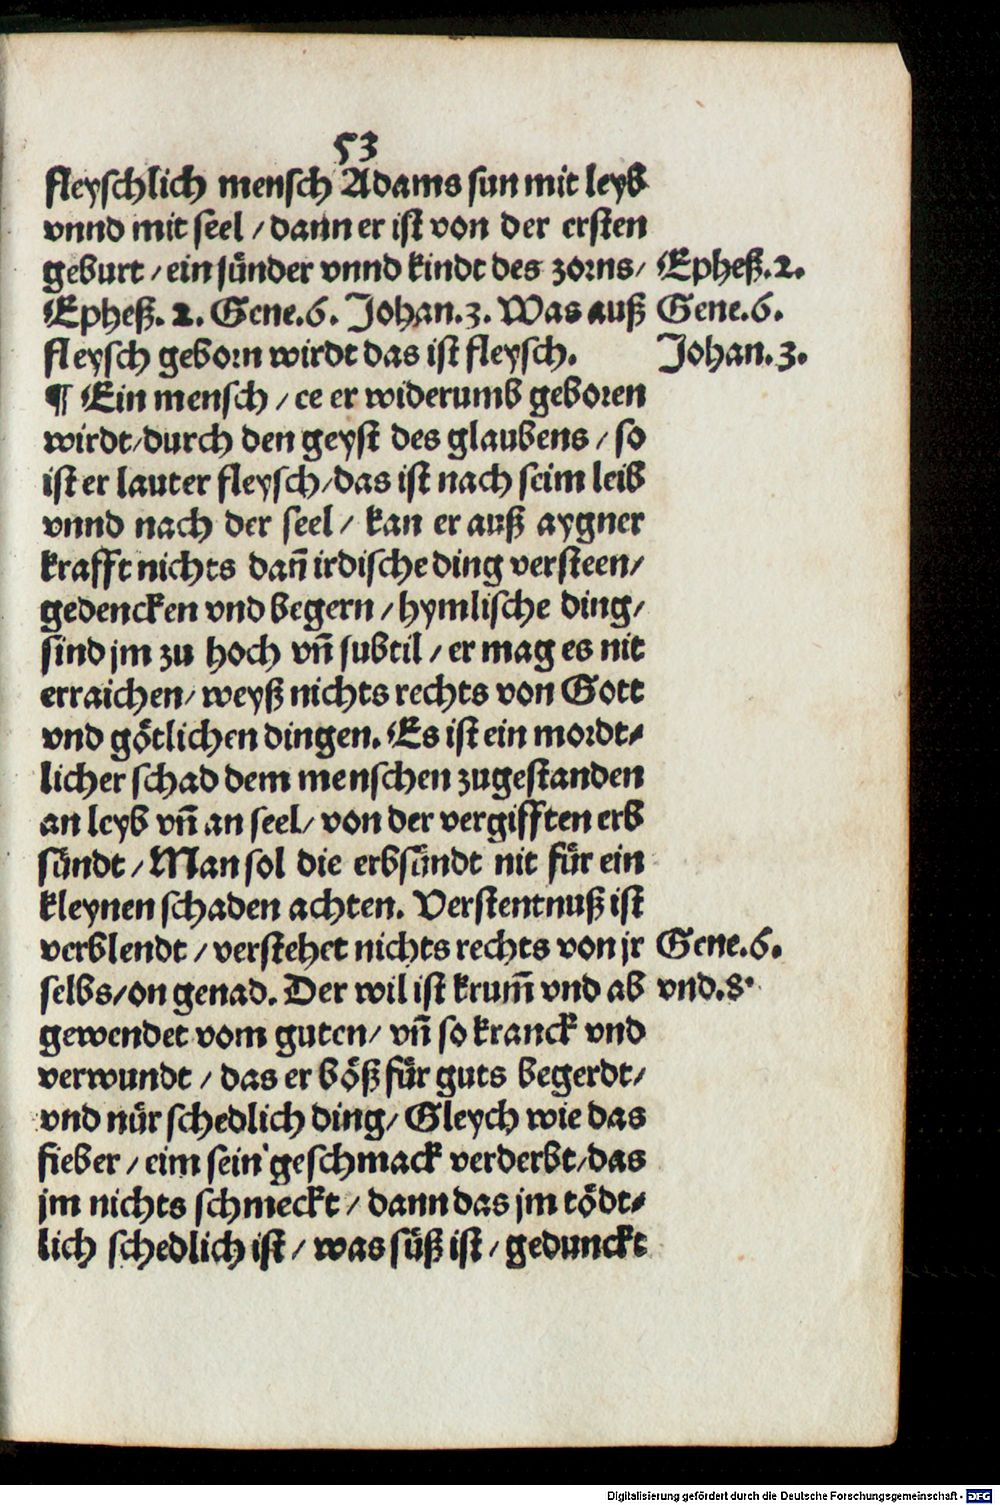 53
fleyschlich mensch Adams sun mit leyb
vnnd mit seel / dann er ist von der ersten
geburt / ein sünder vnnd kindt des zorns / Epheß. 2.
Epheß. 2. Gene. 6. Johan. 3. Was auß Gene. 6.
fleysch geborn wirdt das ist fleysch. Johan. 3.
¶ Ein mensch / ee er widerumb geboren
wirdt / durch den geyst des glaubens / so
ist er lauter fleysch / das ist nach seim leib
vnnd nach der seel / kan er auß aygner
krafft nichts dañ irdische ding versteen /
gedencken vnd begern / hymlische ding /
sind jm zu hoch vñ subtil / er mag es nit
erraichen / weyß nichts rechts von Gott
vnd götlichen dingen. Es ist ein mordt⸗
licher schad dem menschen zugestanden
an leyb vñ an seel / von der vergifften erb
sündt / Man sol die erbsündt nit für ein
kleynen schaden achten. Verstentnuß ist
verblendt / verstehet nichts rechts von jr Gene. 6.
selbs / on genad. Der wil ist krum̃ vnd ab vnd. 8.
gewendet vom guten / vñ so kranck vnd
verwundt / das er böß für guts begerdt /
vnd nür schedlich ding / Gleych wie das
fieber / eim sein geschmack verderbt / das
jm nichts schmeckt / dann das jm tödt⸗
lich schedlich ist / was süß ist / gedunckt
Digitalisierung gefördert durch die Deutsche Forschungsgemeinschaft - DFG